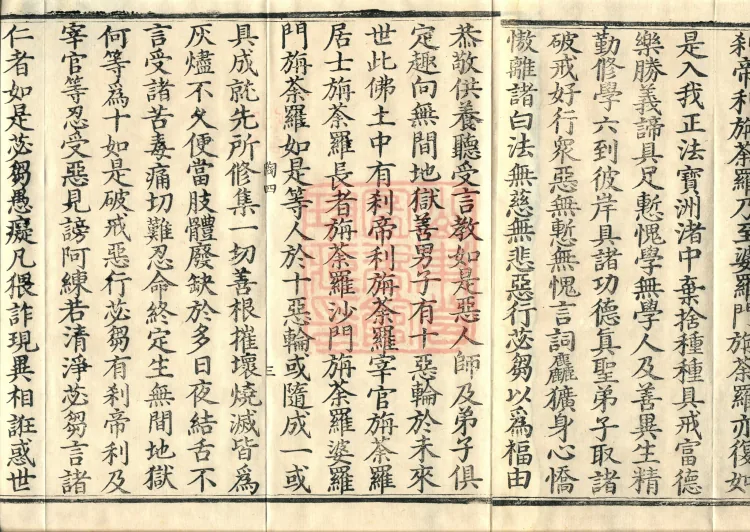 剎帝利旃荼羅乃至婆羅門旃荼羅亦復如
是入我正法寶洲渚中棄捨種種具戒富德
樂勝義諦具足慙愧學無學人及善異生精
勤修學六到彼岸具諸功德真聖弟子取諸
破戒好行眾惡無慙無愧言詞麤獷身心憍
慠離諸白法無慈無悲惡行苾芻以為福由
恭敬供養聽受言教如是惡人師及弟子俱
定趣向無間地獄善男子有十惡輪於未來
世此佛土中有剎帝利旃荼羅宰官旃荼羅
居士旃荼羅長者旃荼羅沙門旃荼羅婆羅
門旃荼羅如是等人於十惡輪或隨成一或
陶四 三
具成就先所修集一切善根摧壞燒滅皆為
灰燼不久便當肢體廢缺於多日夜結舌不
言受諸苦毒痛切難忍命終定生無間地獄
何等為十如是破戒惡行苾芻有剎帝利及
宰官等忍受惡見謗阿練若清淨苾芻言諸
仁者如是苾芻愚癡凡猥詐現異相誑惑世